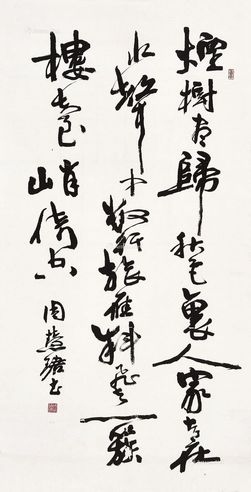 煙樹盡歸秋色裏人家常在
水聲中數行旅雁斜飛去一簇
樓臺峭倚空
周慧珺書